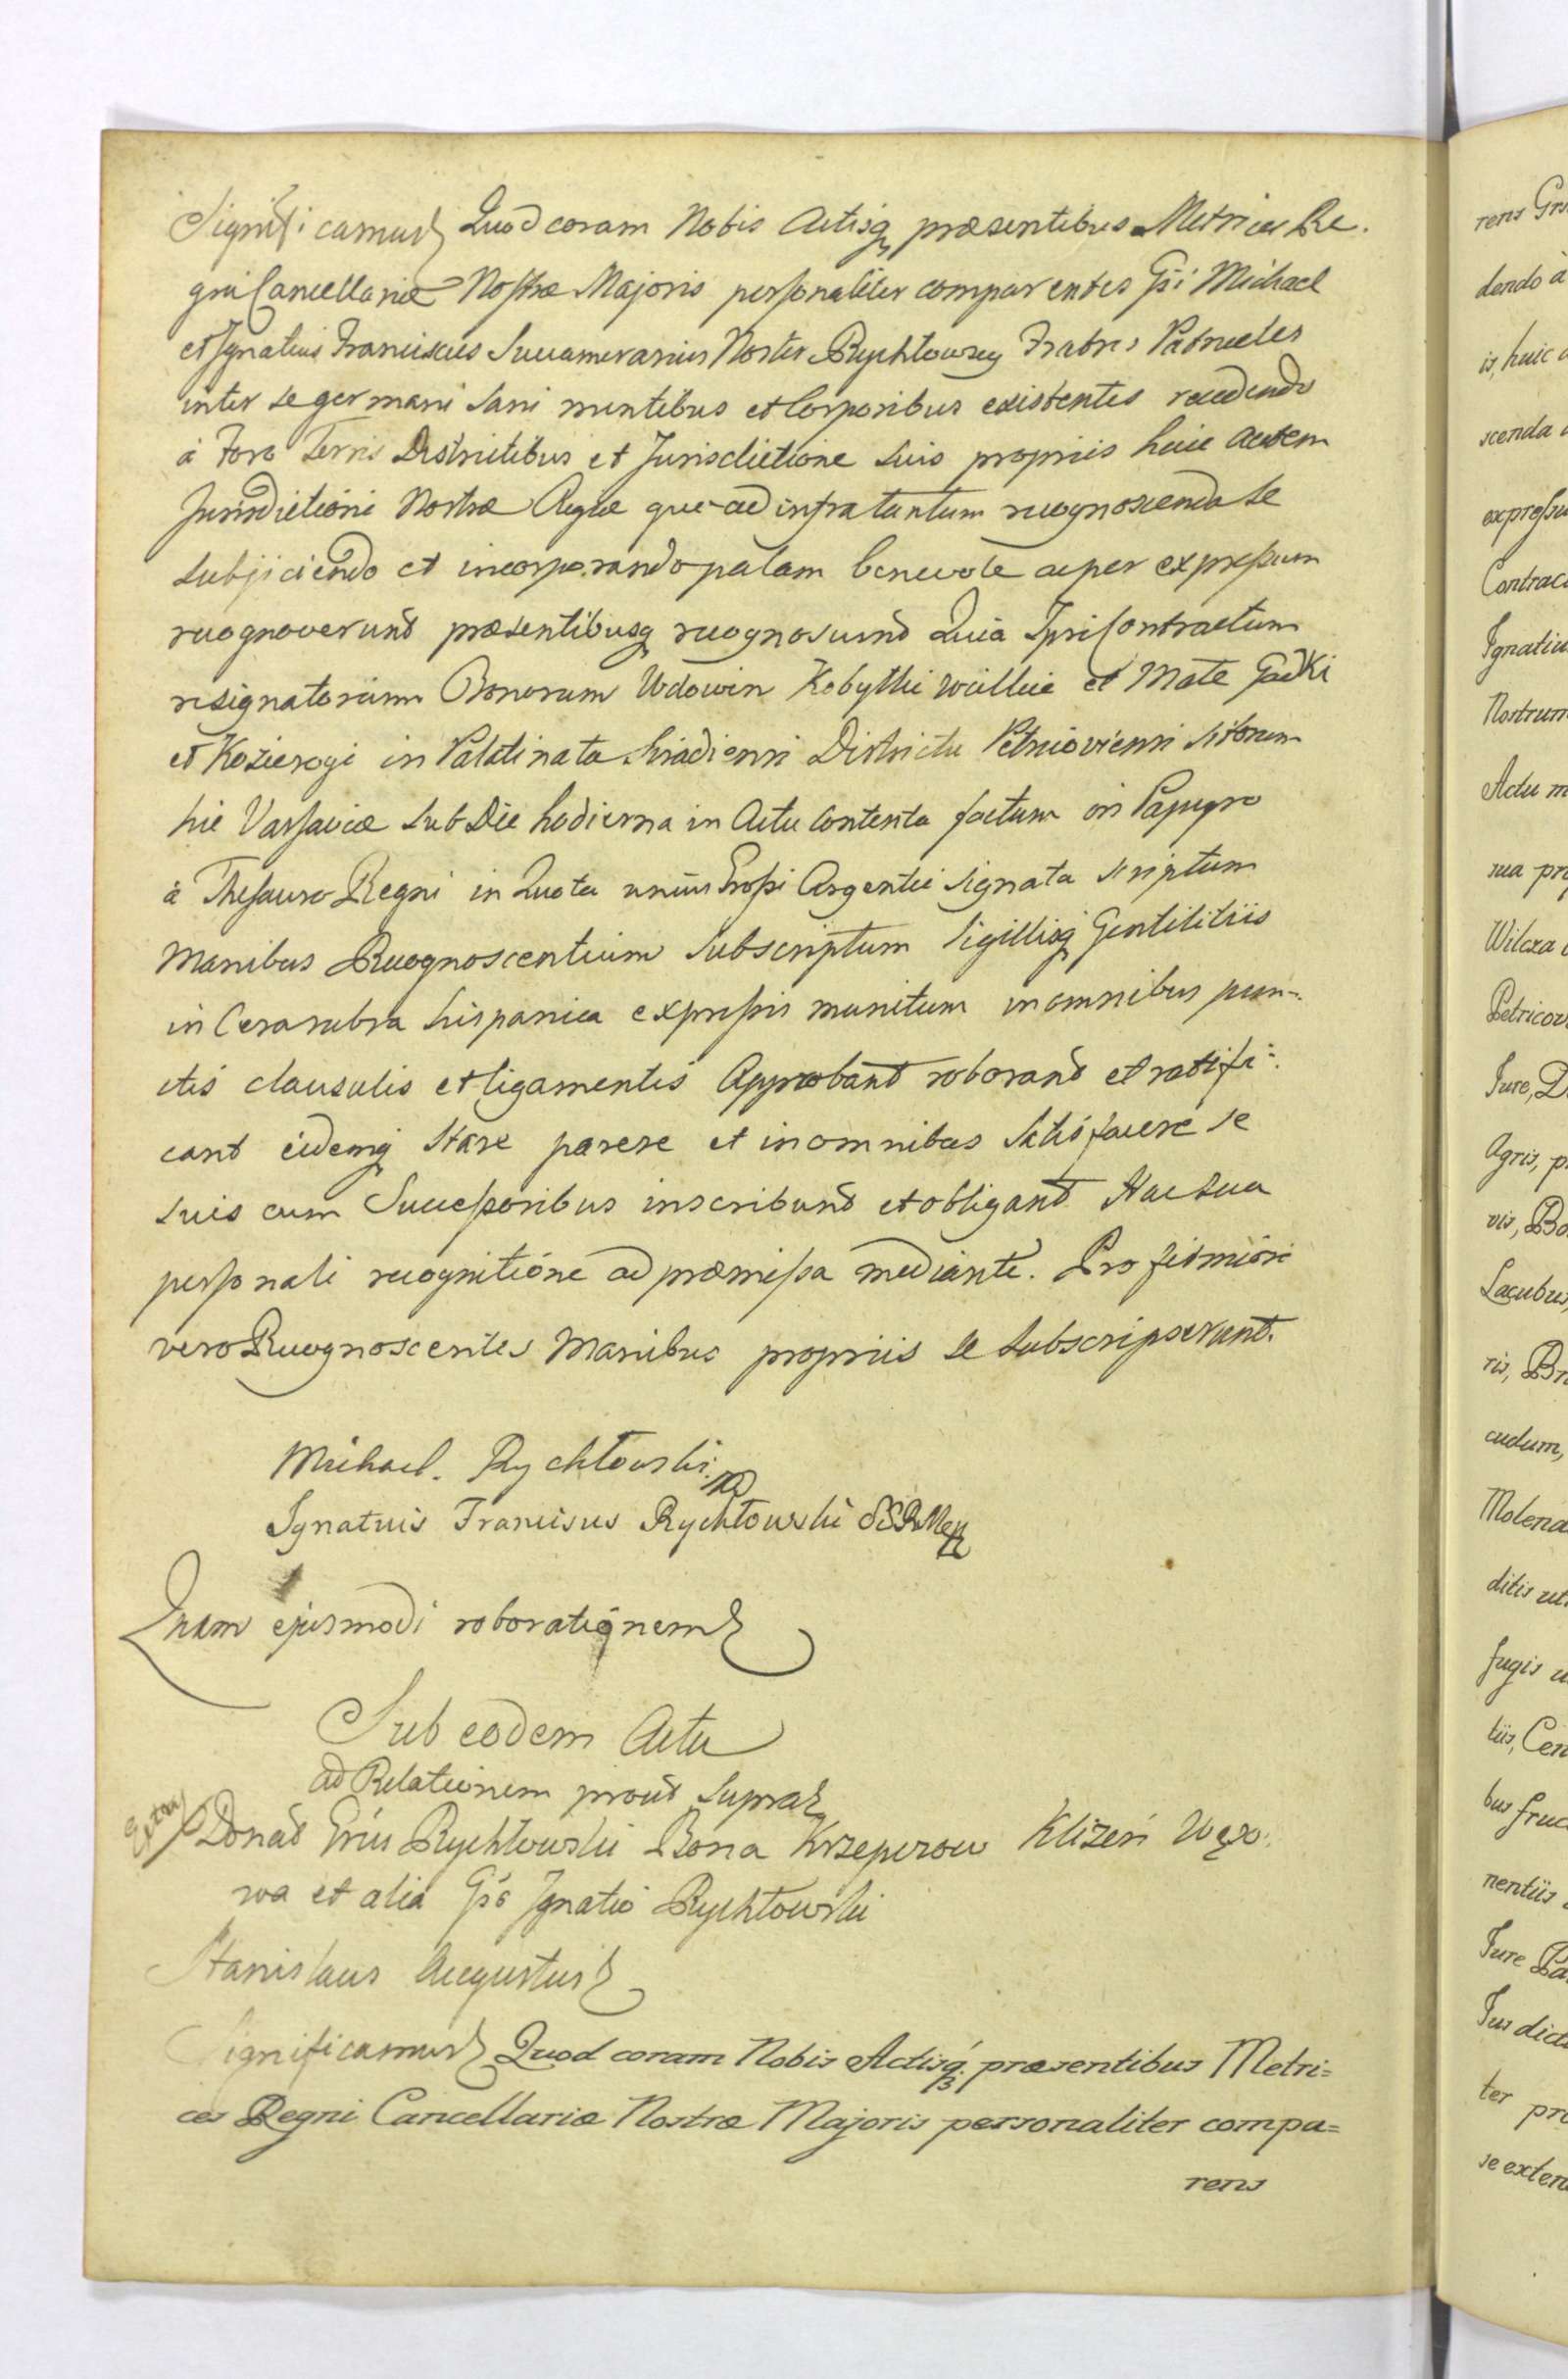 Significamus Quod coram Nobis Actisq præsentibus Metrices Re.
gni Cancellariæ Nostræ Majoris personaliter comparentes Gsi Michael
et Ignatius Franciscus Succamerarius Noster Rychłowscy Fratres Patrueles
inter se germani sani mentibus et Corporibus existentes recedendo
à Foro Terris Districtibus et Jurisdictione suis propriis huic autem
Jurisdictioni Nostræ Regiæ quo ad infra tantum recognoscenda se
subjiciendo et incorporando palam benevole ac per expressum
recognoverunt præsentibusq recognoscunt Quia Ipsi Contractum
resignatorium Bonorum Wdowin Kobyłki wielkie et Małe Gadki
et Kozierogi in Palatinatu Siradiensi Districtu Petricoviensi sitorum
hic Varsaviæ sub Die hodierna in Actu contenta factum in Papyro
à Thesauro Regni in Quota unius Grossi Argentei signata scriptum
Manibus Recognoscentium subscriptum Sigillisq Gentilitiis
in Cera rubra hispanica expressis munitum in omnibus pun-
ctis clausulis et ligamentis Approbant roborant et ratifi:
cant eidemq stare parere et in omnibus satisfacere se
suis cum Successoribus inscribunt et obligant Hac sua
personali recognitione ad præmissa mediante. Pro firmiori
vero Recognoscentes Manibus propriis se subscripserunt.
Michael. Rychłowski
Ignatius Franciscus Rychłowski SSRMey
Quam ejusmodi roborationem
Sub eodem Actu
ad Relationem prout supra
Donat Gsus Rychłowski Bona Krzepczow Klizeń Węxo:
wa et alia Gso Ignatio Rychłowski
Stanislaus Augustus
Significamus Quod coram Nobis Actisq præsentibus Metri=
ces Regni Cancellariæ Nostræ Majoris personaliter compa=
rens
rens
dendo à
is, huic
scenda
expressu
Contrac
Ignatiu
Nostrum
Actu
sua pro
Wilcza
Petricov
Jure, D
Agris, p
vis, Bo
Lacubus,
ris, Br
cudum,
Molena
ditis ut
fugis u
tiis, Cen
bus fruc
nentiis
Jure Pa
Jus dict
ter pr
se exten